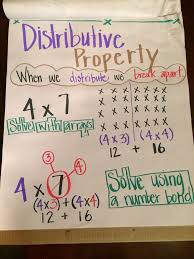 Distributive
Property
When we distribute we break apart!
4 x 7
Solve with arrays
x x x x x x x
x x x x x x x
x x x x x x x
x x x x x x x
(4x3) (4x4)
12 + 16
3 4
4 x 7
(4x3) + (4x4)
12 + 16
Solve using
a number bond